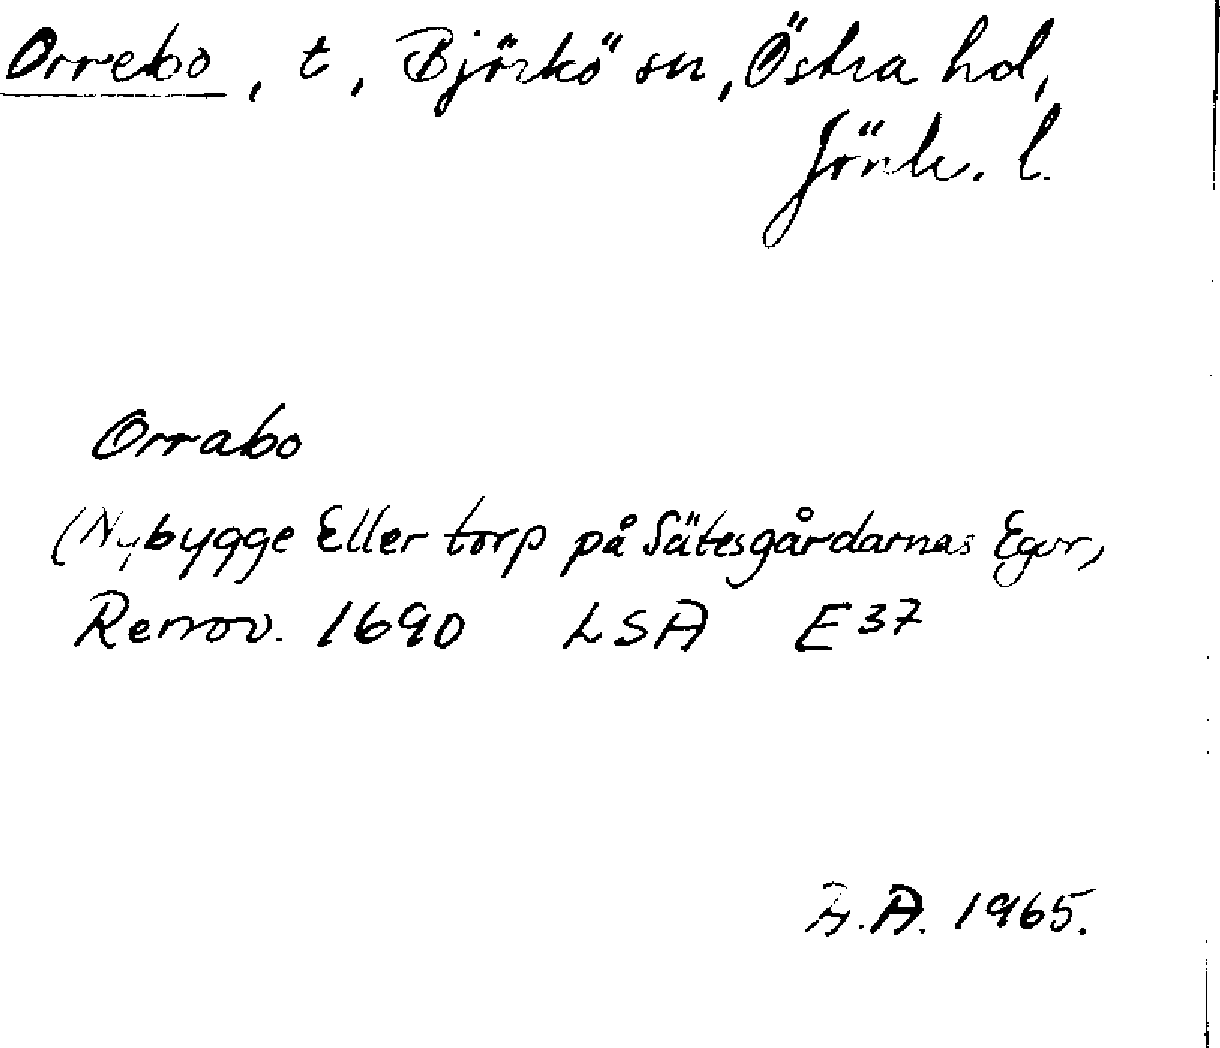 Orrebo, t, Björkö sn, Östra hd,
Jönk. l.
Orrabo
(Nybygge Eller torp på Sätesgårdarnas Egor)
Renov. 1690 LSA E 37
A. 1965.